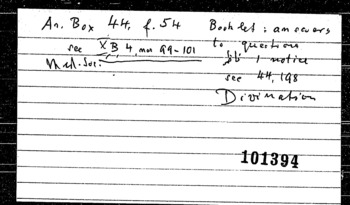 An. Box 44, f. 54
see XB 4, nos 99-101
Med. Soc.
Booklet: answers
to question
1 notice
see 44, 198
Divination
101394